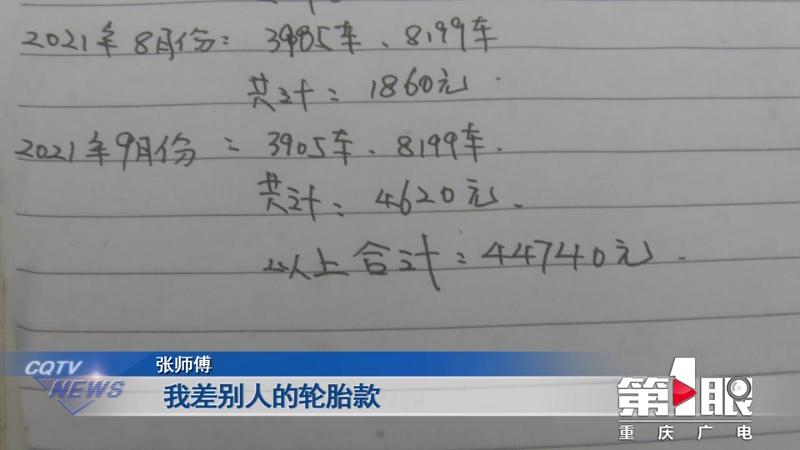 2021年8月份：3905车、8199车
共计：1860元.
2021年9月份：3905车、8199车.
共计：4620元.
以上合计：44740元.
CQTV
NEWS
张师傅
我差别人的轮胎款
第1眼
重庆广电